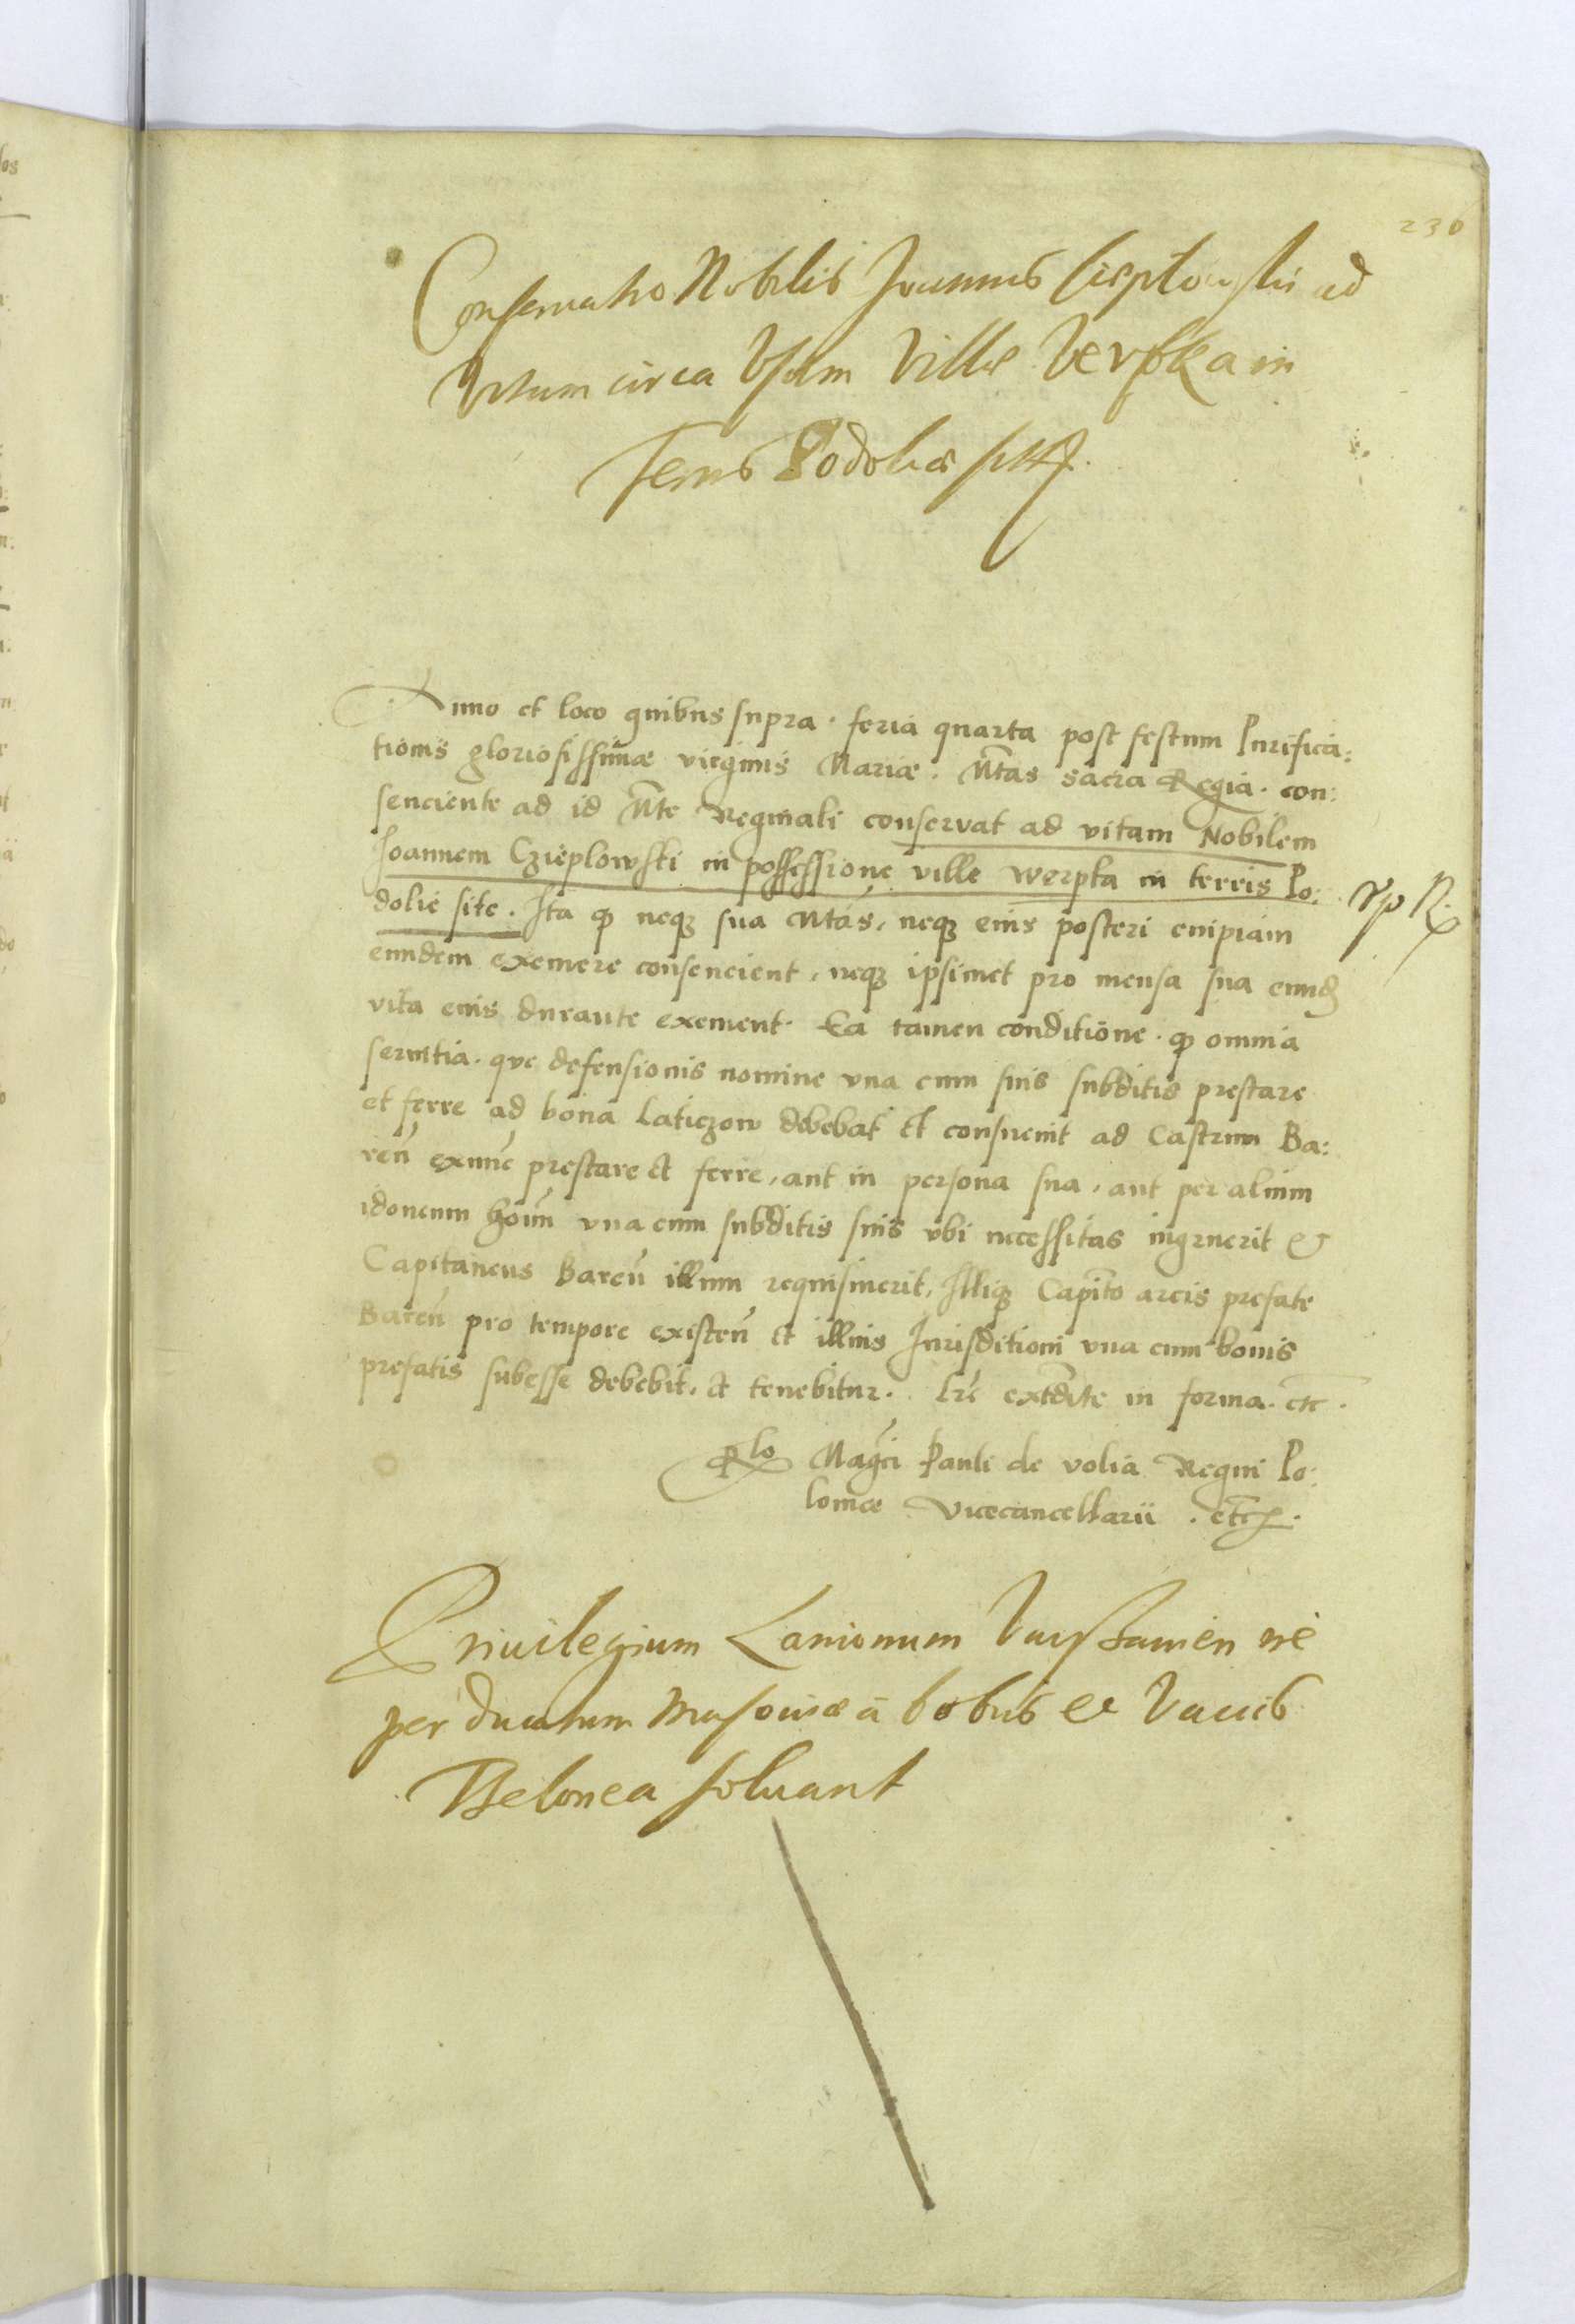 236
Conservatio Nobilis Joannis Cieplowski ad
Vitam circa Usum Villæ Verpka in
Terris Podoliæ sitæ.
Anno et loco quibus supra. feria quarta post festum Purifica:
tionis gloriosissimæ virginis Mariæ. Mtas sacra Regia. con:
senciente ad id Mte Reginali conservat ad vitam Nobilem
Joannem Czieplowski in possessione ville Werpka in terris Po:
dolie site. Ita q neq sua Mtas, neq eius posteri cuipiam
eundem exemere consencient, neq ipsimet pro mensa sua eund
vita eius durante exement. Ea tamen conditione. q omnia
servitia. que defensionis nomine una cum suis subditis prestare
et ferre ad bona Laticzow debebat et consuevit ad Castrum Ba:
ren exnunc prestare et ferre, aut in persona sua, aut per alium
idoneum hoim una cum subditis suis ubi necessitas ingruerit et
Capitaneus Baren illum requisiverit, Illiq Capito arcis prefate
Baren pro tempore existen et illius Jurisditioni una cum bonis
prefatis subesse debebit, et tenebitur. Lre extdite in forma. etc.
Rlo Magci Pauli de volia Regni Po:
loniæ Vicecancellarii. etc.
Privilegium Lanionum Varschavien ne
per ducatum Masoviæ a bobus et Vaccis
Thelonea solvant